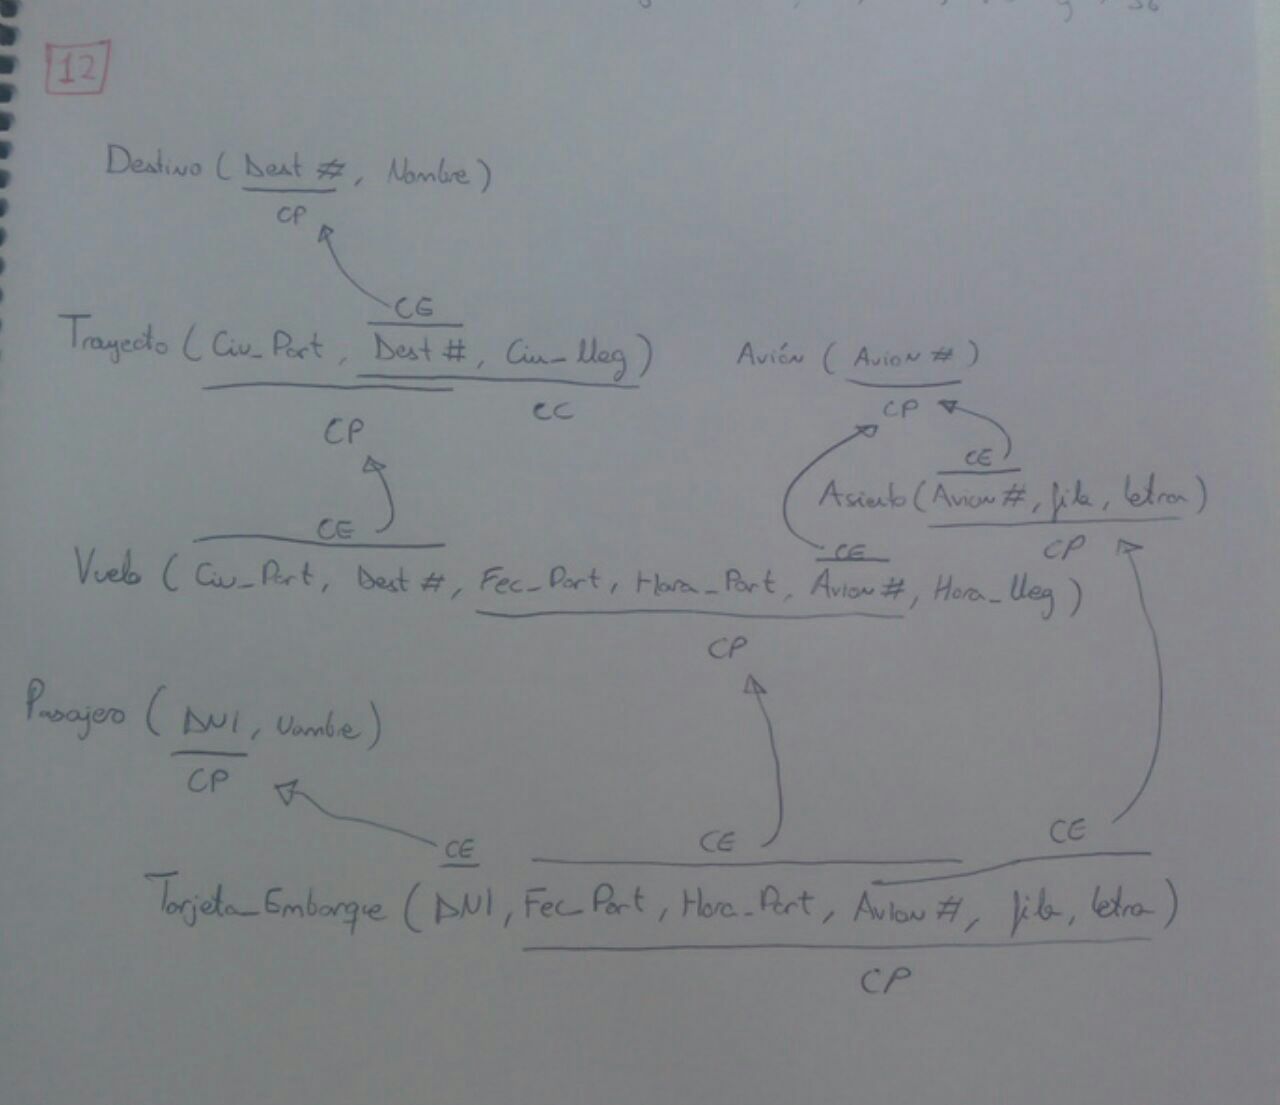 12
Destino ( Dest #, Nombre )
CP
CE
Trayecto ( Ciu_Part, Dest #, Ciu_lleg )
CP
CC
Avión ( Avion # )
CP
CE
Asiento ( Avion #, fila, letra )
CP
CE
CE
Vuelo ( Ciu_Part, Dest #, Fec_Part, Hora_Part, Avion #, Hora_lleg )
CP
Pasajero ( DNI, Nombre )
CP
CE
CE
CE
Tarjeta_Embarque ( DNI, Fec_Part, Hora_Part, Avion #, fila, letra )
CP